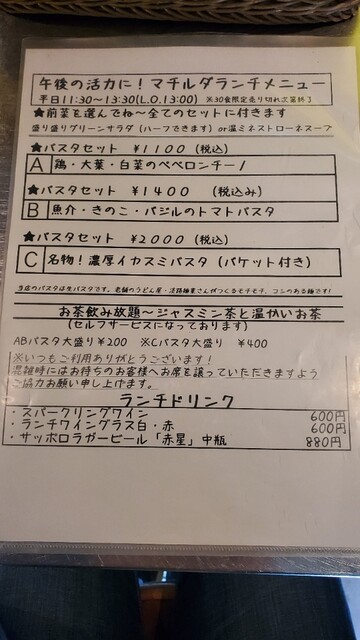 午後の活力に！マチルダランチメニュー
平日11:30～13:30(L.O.13:00) ※30食限定売り切れ次第終了
★前菜を選んでね～全てのセットに付きます
盛り盛りグリーンサラダ（ハーフできます）or温ミネストローネスープ
★パスタセット ¥1100（税込）
A 鶏・大葉・白菜のペペロンチーノ
★パスタセット ¥1400（税込み）
B 魚介・きのこ・バジルのトマトパスタ
★パスタセット ¥2000（税込）
C 名物！濃厚イカスミパスタ（バケット付き）
当店のパスタは生パスタです。老舗のうどん屋・淡路麺業さんがつくるモチモチ、コシのある麺です！
お茶飲み放題～ジャスミン茶と温かいお茶
（セルフサービスになっております）
ABパスタ大盛り¥200 ※Cパスタ大盛り ¥400
※いつもご利用ありがとうございます！
混雑時にはお待ちのお客様へお席を譲っていただきますよう
ご協力お願い申し上げます。
ランチドリンク
・スパークリングワイン 600円
・ランチワイングラス白・赤 600円
・サッポロラガービール「赤星」中瓶 880円